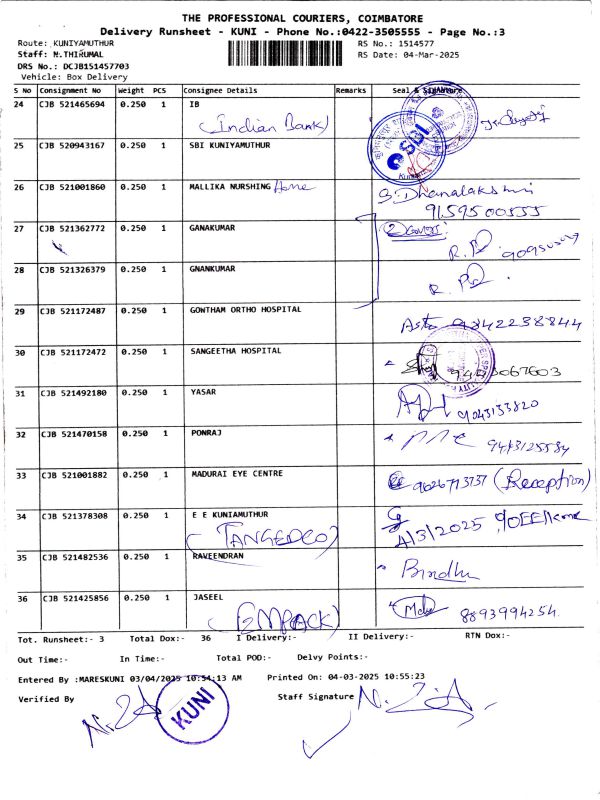 THE PROFESSIONAL COURIERS, COIMBATORE
Delivery Runsheet - KUNI - Phone No.:0422-3505555 - Page No.:3
Route: KUNIYAMUTHUR RS No.: 1514577
Staff: M.THIRUMAL RS Date: 04-Mar-2025
DRS No.: DCJB151457703
Vehicle: Box Delivery
S No Consignment No Weight PCS Consignee Details Remarks Seal & Signature
24 CJB 521465694 0.250 1 IB
(Indian Bank)
25 CJB 520943167 0.250 1 SBI KUNIYAMUTHUR
SBI
26 CJB 521001860 0.250 1 MALLIKA NURSHING Home S. Dhanalakshmi
9159500555
27 CJB 521362772 0.250 1 GANAKUMAR
28 CJB 521326379 0.250 1 GNANKUMAR
29 CJB 521172487 0.250 1 GOWTHAM ORTHO HOSPITAL 9842238844
30 CJB 521172472 0.250 1 SANGEETHA HOSPITAL
31 CJB 521492180 0.250 1 YASAR 9043133820
32 CJB 521470158 0.250 1 PONRAJ
33 CJB 521001882 0.250 1 MADURAI EYE CENTRE 9626713737 (Reception)
34 CJB 521378308 0.250 1 E E KUNIAMUTHUR
(TANGEDCO) 4/3/2025
35 CJB 521482536 0.250 1 RAVEENDRAN Bindhu
36 CJB 521425856 0.250 1 JASEEL 8893994254
(2MPACK)
Tot. Runsheet:- 3 Total Dox:- 36 I Delivery:- II Delivery:- RTN Dox:-
Out Time:- In Time:- Total POD:- Delvy Points:-
Entered By :MARESKUNI 03/04/2025 10:54:13 AM Printed On: 04-03-2025 10:55:23
Verified By Staff Signature
KUNI